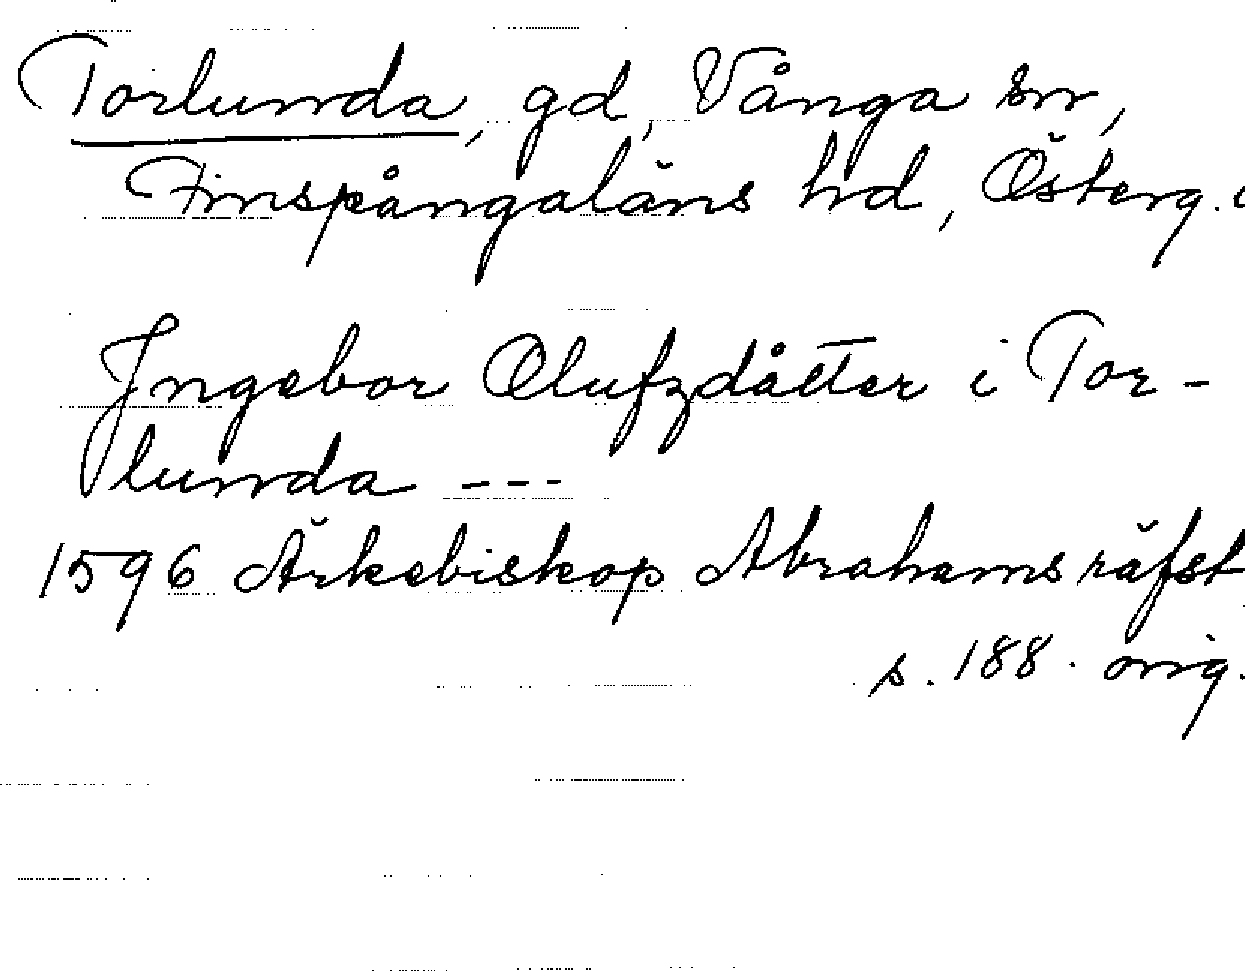 Torlunda, gd, Vånga sn,
Finspångaläns hd, Österg.
Jngebor Olufzdåtter i Tor-
lunda ---
1596 Ärkebiskop Abrahams räfst
s. 188. orig.